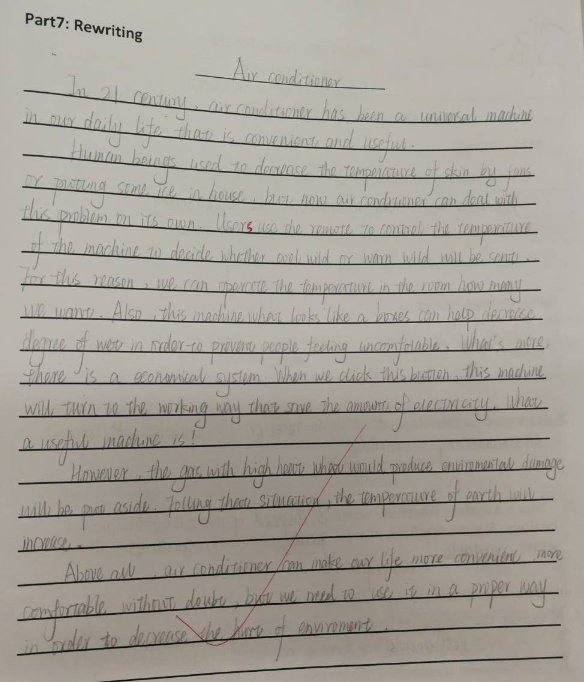 Part7: Rewriting
Air conditioner
In 21 century, air conditioner has been a universal machine
in our daily life that is convenient and useful.
Human beings used to decrease the temperature of skin by fans
or putting some ice in house, but now air conditioner can deal with
this problem on its own. Users use the remote to control the temperature
of the machine to decide whether cool wild or warn wild will be sent.
For this reason, we can operate the temperature in the room how many
we want. Also, this machine what looks like a boxes can help decrease
degree of wet in order to prevent people feeling uncomfotable. What's more,
there is a economical system. When we click this button, this machine
will turn to the working way that save the amount of electricity. What
a useful machine is!
However, the gas with high heat what would produce enviromental damage
will be put aside. Folling that situcation, the temperature of earth will
increase.
Above all, air conditioner can make our life more convenient, more
comfortable without doubt, but we need to use it in a proper way
in order to decrease the hurt of enviroment.